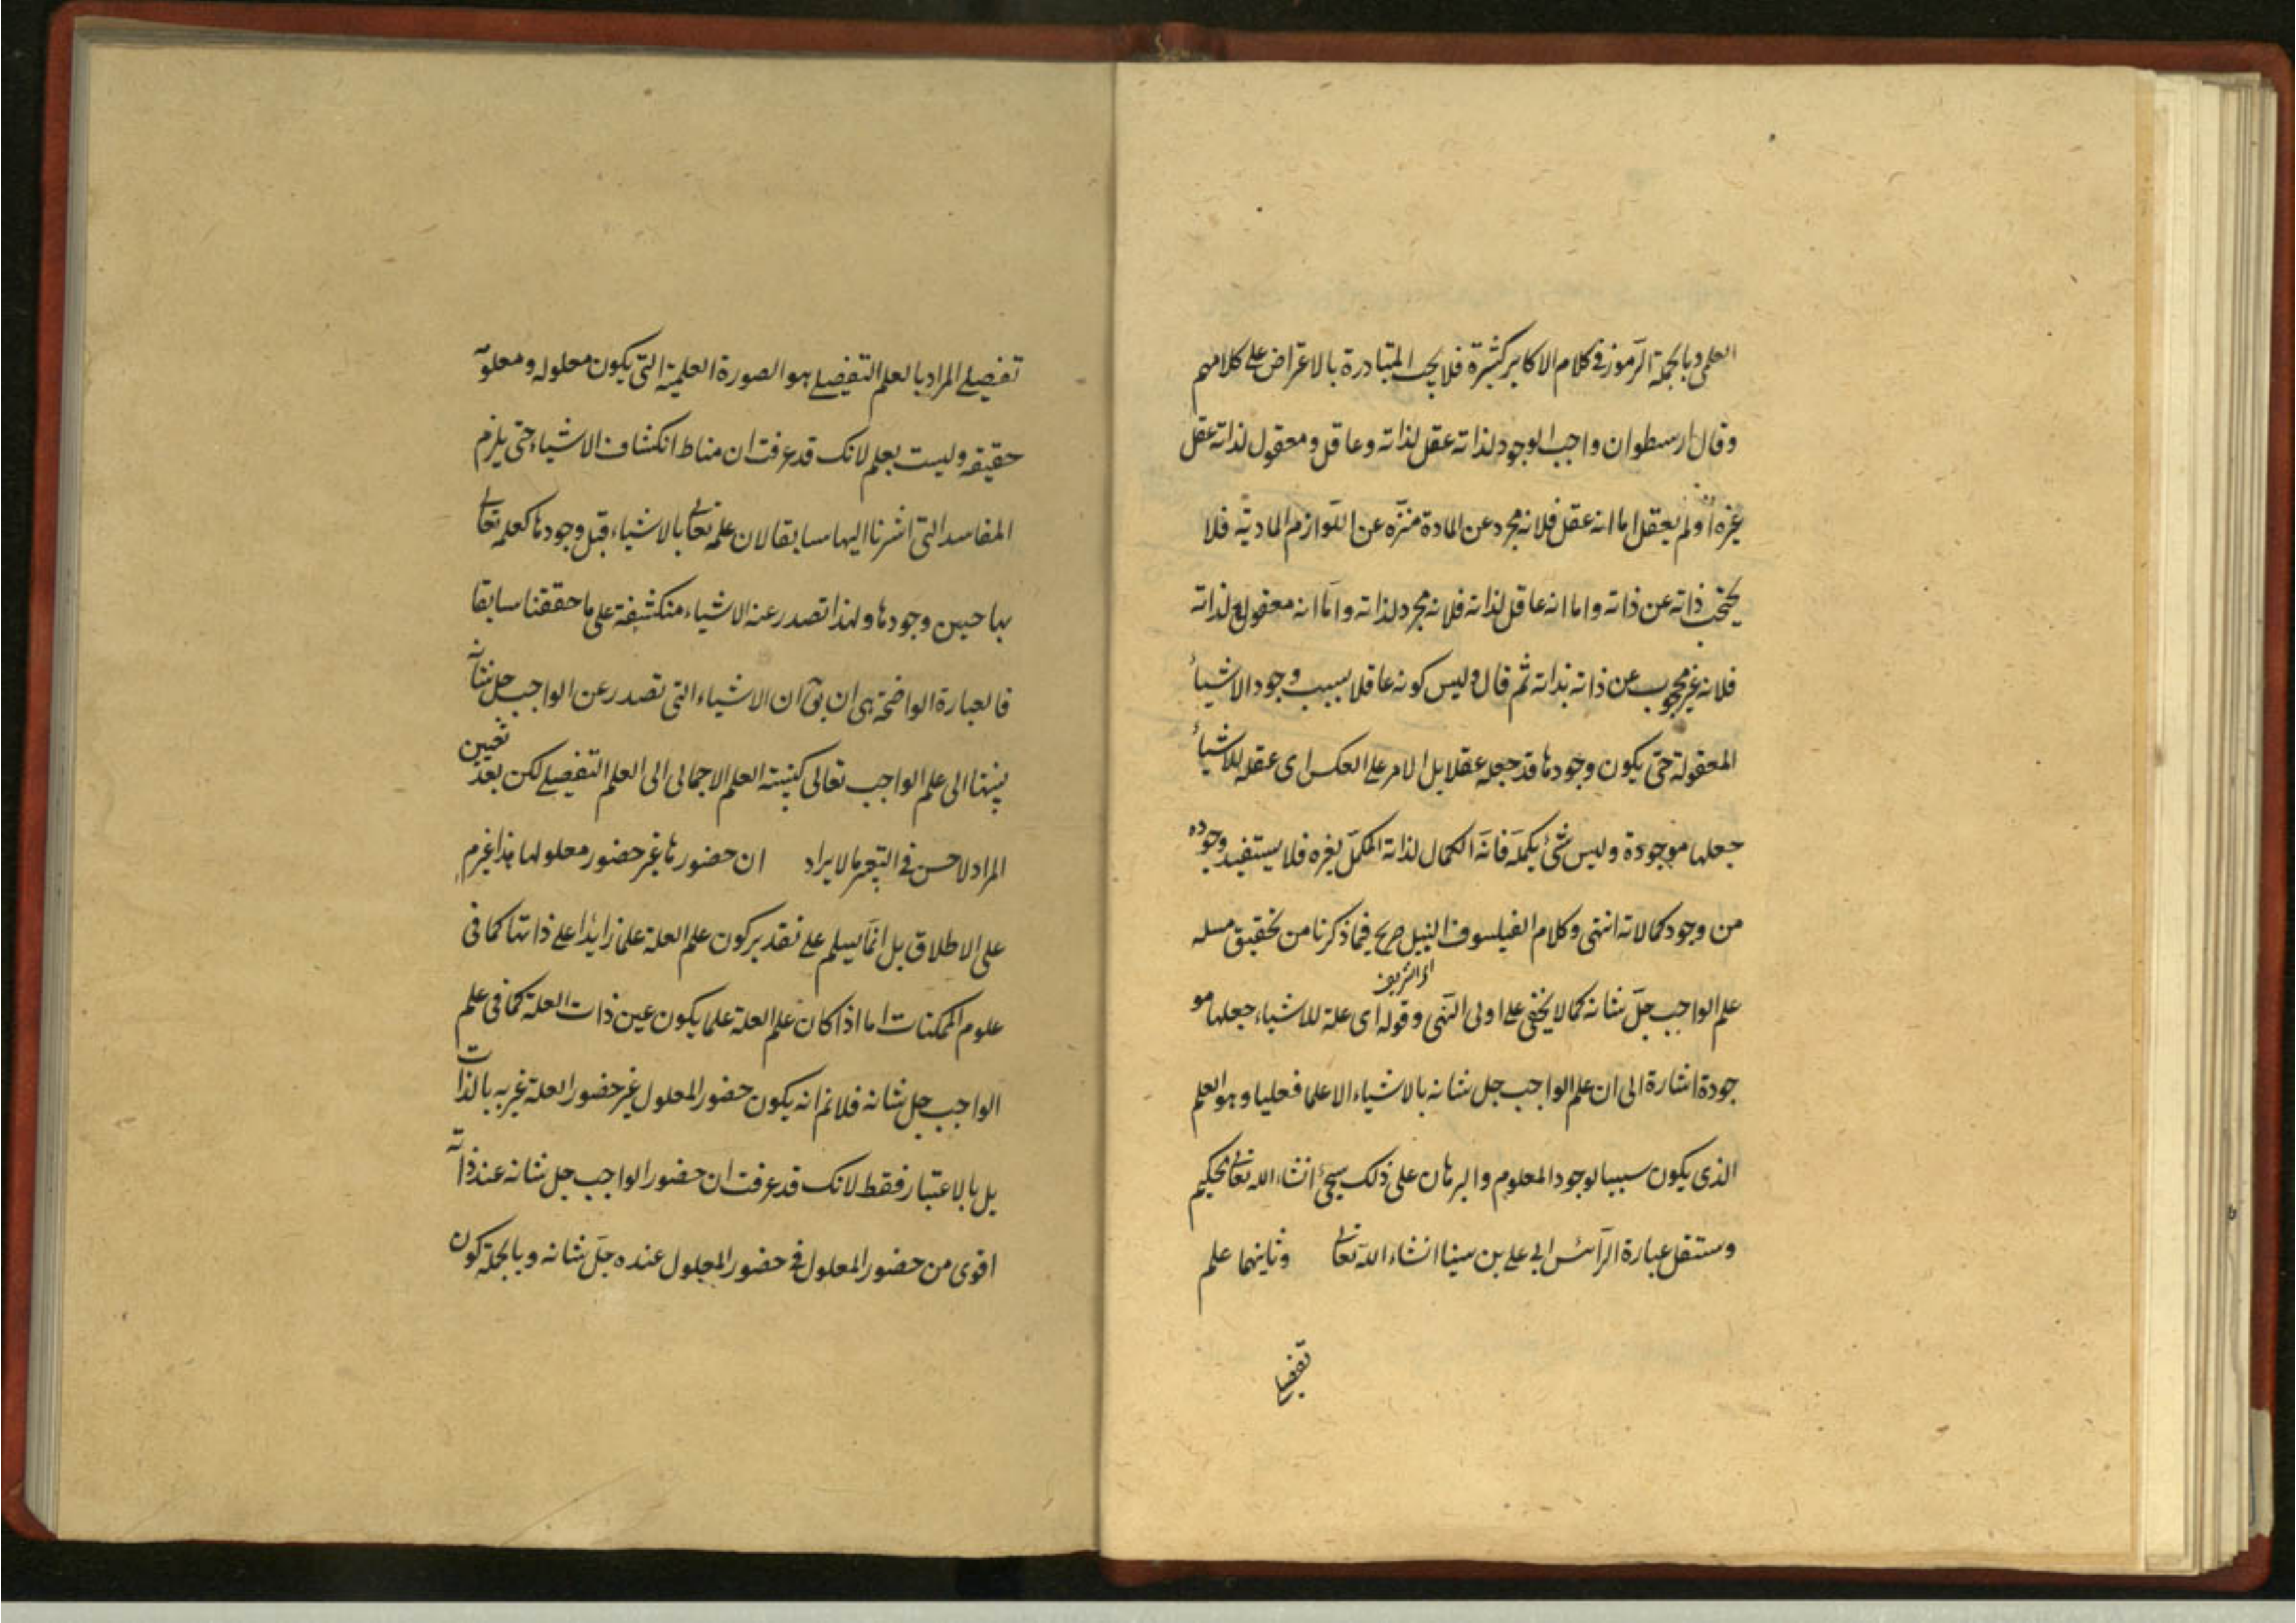 العلمى وبالجملة الرموز فى كلام الاكابر كثيرة فلا يجب المتبادرة بالاعتراض على كلامهم
وقال ارسطو ان واجب الوجود لذاته عقل لذاته وعاقل ومعقول لذاته عقل
غيره او لم يعقل اما انه عقل فلانه مجرد عن المادة منزه عن اللوازم المادية فلا
يحتجب ذاته عن ذاته واما انه عاقل لذاته فلانه مجرد لذاته واما انه معقول لذاته
فلانه غير محجوب عن ذاته بذاته ثم قال وليس كونه عاقلا بسبب وجود الاشياء
المعقولة حتى يكون وجودها قد جعله عقلا بل الامر على العكس اى عقله للاشياء
جعلها موجودة وليس شئ يكمله فانه الكمال لذاته المكمل لغيره فلا يستفيد وجوده
من وجود كمالاته انتهى وكلام الفيلسوف النبيل صريح فيما ذكرنا من تحقيق مسله
علم الواجب جل شانه كما لا يخفى على اولى النهى وقوله اى علة للاشياء جعلها مو
جودة اشارة الى ان علم الواجب جل شانه بالاشياء الا علما فعليا وهو العلم
الذى يكون سببا لوجود المعلوم والبرهان على ذلك سيجئ انشاء الله تعالى
وستنقل عبارة الرائس ابى على بن سينا انشاء الله تعالى وثانيهما علم
تفصيلى
تفصيلى المراد بالعلم التفصيلى هو الصورة العلمية التى يكون معلوله ومعلومه
حقيقة وليست بعلم لانك قد عرفت ان مناط انكشاف الاشياء حتى يلزم
المفاسد التى اشرنا اليها سابقا لان علمه تعالى بالاشياء قبل وجودها كعلمه تعالى
بها حين وجودها ولهذا تصدر عنه الاشياء منكشفة على ما حققنا سابقا
فالعبارة الواضحة هى ان يق ان الاشياء التى تصدر عن الواجب جل شانه
نسبتها الى علم الواجب تعالى كنسبته العلم الاجمالى الى العلم التفصيلى لكن بعد تعيين
المراد لا حسن فى التعبير مالا يراد ان حضورها غير حضور معلولها هذا غير م
على الاطلاق بل انما يسلم على تقدير كون علم العلة علما زايدا على ذاتها كما فى
علوم الممكنات اما اذا كان علم العلة علما يكون عين ذات العلة كما فى علم
الواجب جل شانه فلانم انه يكون حضور المعلول غير حضور العلة غيريه بالذات
بل بالاعتبار فقط لانك قد عرفت ان حضور الواجب جل شانه عند ذاته
اقوى من حضور المعلول فى حضور المعلول عنده جل شانه وبالجملة كون